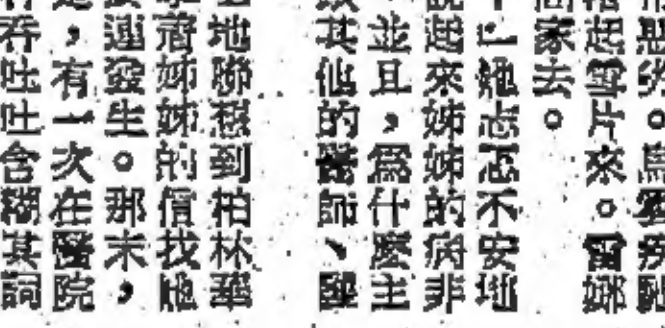 劣。
起雪片來。雷娜
家去。
她忐忑不安地
起來姊姊的病非
並且，爲什麼主
其他的醫師、
地聯想到柏林
着姊姊的信找她
連發生。那末，
，有一次在醫院
吞吐吐含糊其詞